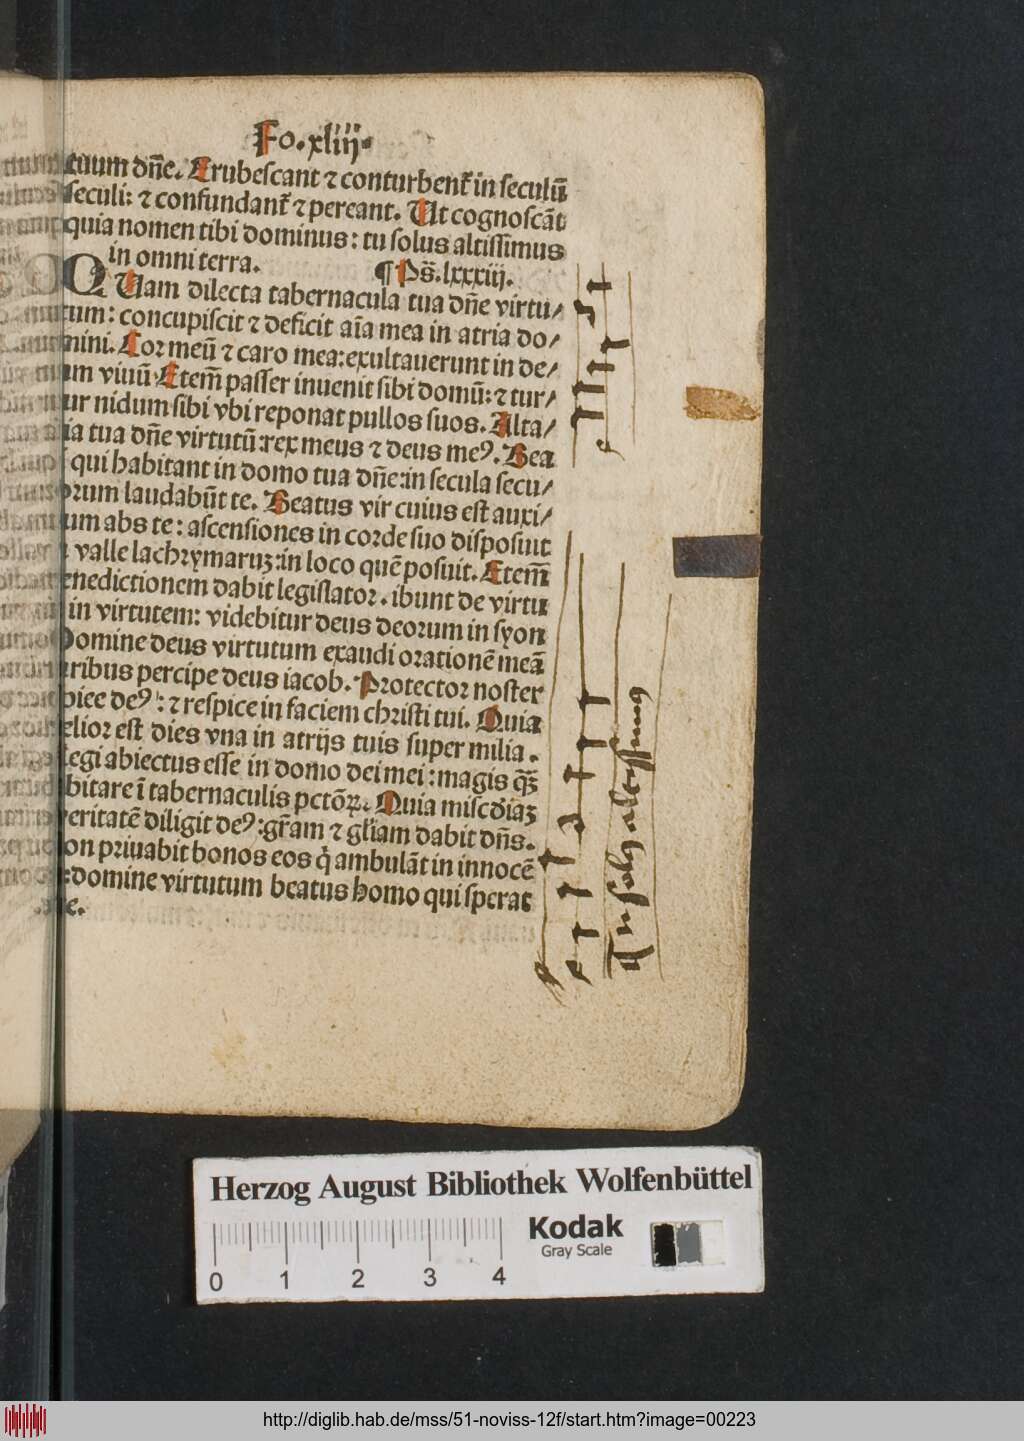 Fo. xliij.
tuum dñe. Erubescant ⁊ conturbent᷑ in seculũ
seculi: ⁊ confundant᷑ ⁊ pereant. Ut cognoscãt
quia nomen tibi dominus: tu solus altissimus
in omni terra. ¶ Ps̃. lxxxiij.
QUam dilecta tabernacula tua dñe virtu/
tum: concupiscit ⁊ deficit aĩa mea in atria do/
mini. Cor meũ ⁊ caro mea: exultauerunt in de/
um viuũ. Etem̃ passer inuenit sibi domũ: ⁊ tur/
ur nidum sibi vbi reponat pullos suos. Alta/
ia tua dñe virtutũ: rex meus ⁊ deus meꝰ. Bea
qui habitant in domo tua dñe: in secula secu/
orum laudabũt te. Beatus vir cuius est auxi/
um abs te: ascensiones in corde suo disposuit
valle lachrymaruꝫ: in loco quẽ posuit. Etem̃
enedictionem dabit legislator. ibunt de virtu
in virtutem: videbitur deus deorum in syon
Domine deus virtutum exaudi orationẽ meã
ribus percipe deus iacob. Protector noster
piee deꝰ: ⁊ respice in faciem christi tui. Quia
elior est dies vna in atrijs tuis super milia.
legi abiectus esse in domo dei mei: magis q̃ꝫ
bitare ĩ tabernaculis pctõꝝ. Quia misc̃diaꝫ
eritatẽ diligit deꝰ: gr̃am ⁊ gl̃iam dabit dñs.
on priuabit bonos eos q̇ ambulãt in innocẽ
: domine virtutum beatus homo qui sperat
te.
Tu solus altissimus
Herzog August Bibliothek Wolfenbüttel
Kodak
Gray Scale
0 1 2 3 4
http://diglib.hab.de/mss/51-noviss-12f/start.htm?image=00223